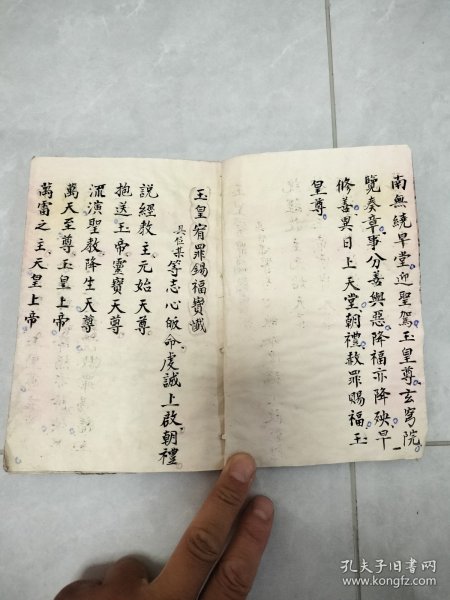 南無繞早堂迎聖駕玉皇尊玄穹院
覽奏章事分善與惡降福亦降殃早
修善異日上天堂朝禮赦罪賜福玉
皇尊
玉皇宥罪錫福寶懺
具位某等志心皈命虔誠上啟朝禮
說經教主元始天尊
抱送玉帝靈寶天尊
流演聖教降生天尊
萬天至尊玉皇上帝
萬雷之主天皇上帝
孔夫子旧书网
www.kongfz.com